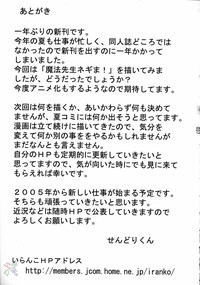 あとがき
一年ぶりの新刊です。
今年の夏も仕事が忙しく、同人誌どころでは
なかったので新刊を出すのに一年かかって
しまいました。
今回は「魔法先生ネギま！」を描いてみま
したが、どうだったでしょうか？
今度アニメ化もするようなので期待してます。
次回は何を描くか、あいかわらず何も決めて
ませんが、夏コミには何か出そうと思ってます。
漫画は立て続けに描いてきたので、気分を
変えて何か別の事ををやるかもしれませんが
まだなんとも言えません。
自分のHPも定期的に更新していきたいと
思ってますので、気が向いた時にでも見に来て
もらえれば幸いです。
2005年から新しい仕事が始まる予定です。
そちらも頑張っていきたいと思います。
近況などは随時HPで公表していきますので
よろしくお願いします。
せんどりくん
いらんこHPアドレス
http://members.joom.home.ne.jp/iranko/